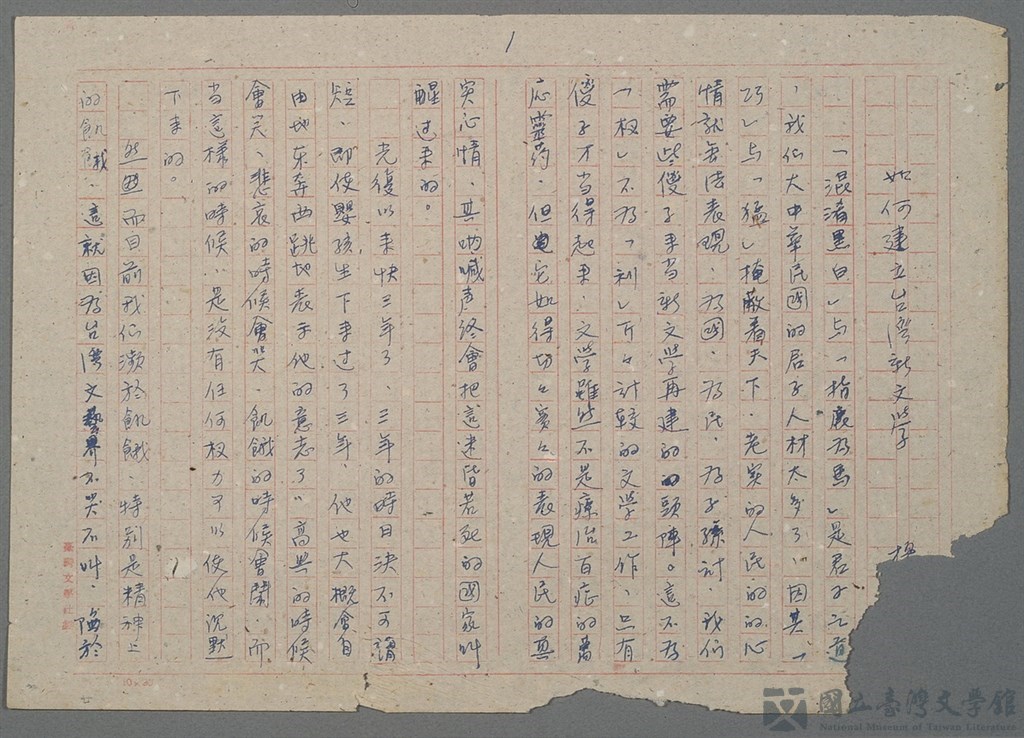 1
如何建立台灣新文學
楊
「混淆黑白」与「指鹿為馬」是君子之道
，我们大中華民國的君子人材太多了，因其「
巧」与「猛」掩蔽着天下．老实的人民的的心
情就無法表現．為國．為民．為子孫討．我们
需要些傻子来当新文學再建的頭陣。這不為
「权」不為「利」斤々計較的文學工作．只有
傻子才当得起来．文學雖然不是療治百症的萬
応靈药．但它如得切々實々的表現人民的真
实心情．其吶喊声終會把這迷昏若死的國家叫
醒过来的。
光復以来快三年了．三年的時日決不可謂
短．即使嬰孩生下来过了三年．他也大概會自
由地東奔西跳地表示他的意志了．高興的時候
會笑．悲哀的時候會哭．飢餓的時候會鬧．而
当這樣的時候．是沒有任何权力可以使他沉默
下来的。
然而目前我们瀕於飢餓．特别是精神上
的飢餓．這就因為台灣文藝界不哭不叫．陷於
臺灣文學社
10×20
國立臺灣文學館
National Museum of Taiwan Literature